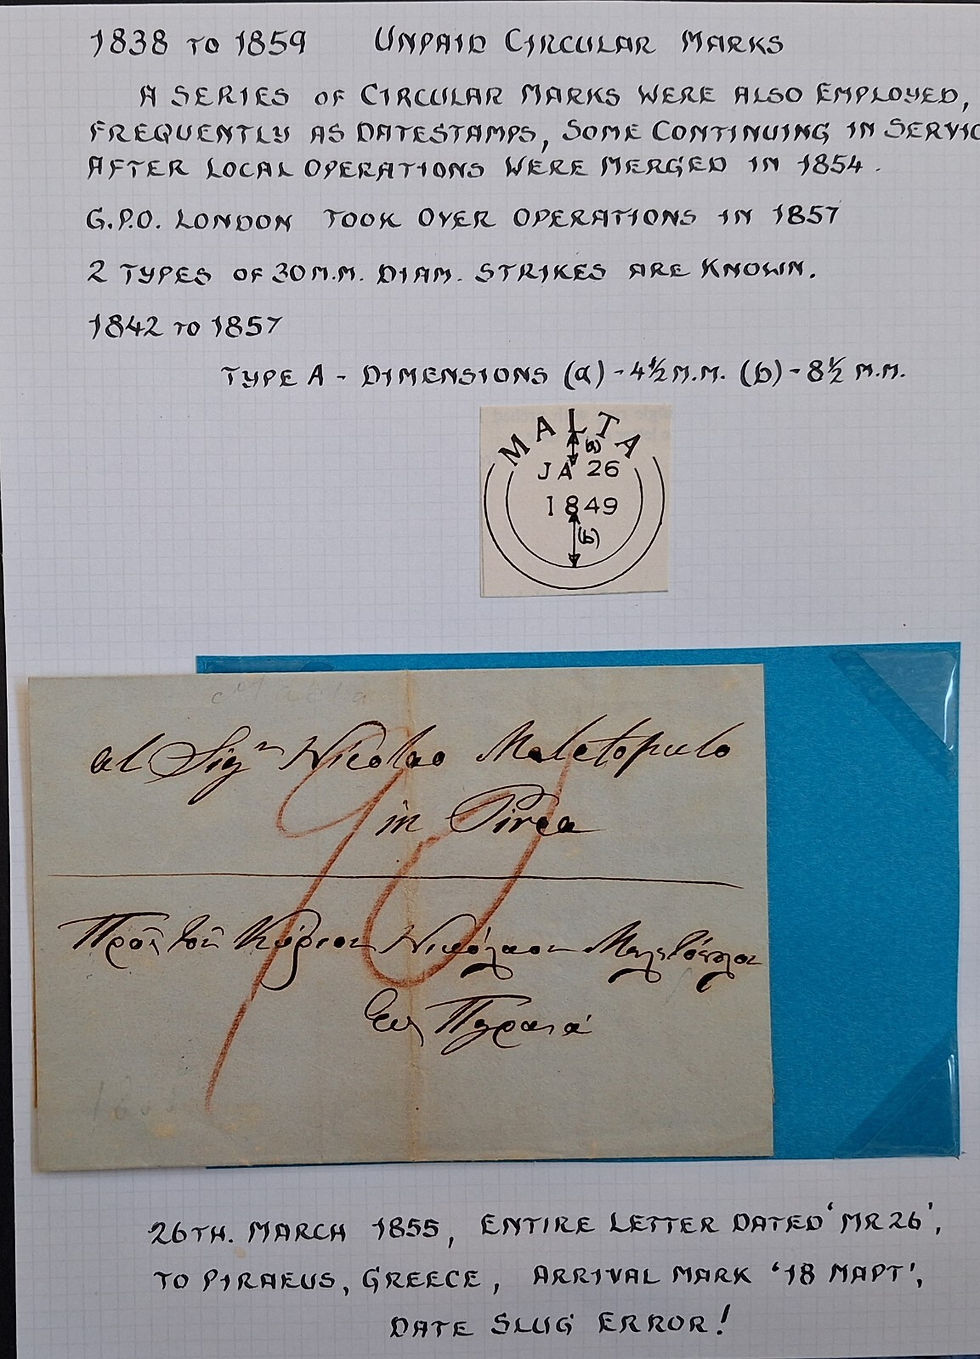 1838 TO 1859 UNPAID CIRCULAR MARKS
A SERIES OF CIRCULAR MARKS WERE ALSO EMPLOYED,
FREQUENTLY AS DATESTAMPS, SOME CONTINUING IN SERVIC
AFTER LOCAL OPERATIONS WERE MERGED IN 1854.
G.P.O. LONDON TOOK OVER OPERATIONS IN 1857
2 TYPES OF 30 M.M. DIAM. STRIKES ARE KNOWN.
1842 TO 1857
TYPE A - DIMENSIONS (a) - 4½ M.M. (b) - 8½ M.M.
MALTA
(a)
JA 26
1849
(b)
al Sigr Nicolao Meletopulo
in Pirea
90
Πρὸς τὸν Κύριον Νικόλαον Μελετόπουλον
Εἰς Πειραιᾶ
26TH. MARCH 1855, ENTIRE LETTER DATED 'MR 26',
TO PIRAEUS, GREECE, ARRIVAL MARK '18 ΜΑΡΤ',
DATE SLUG ERROR!